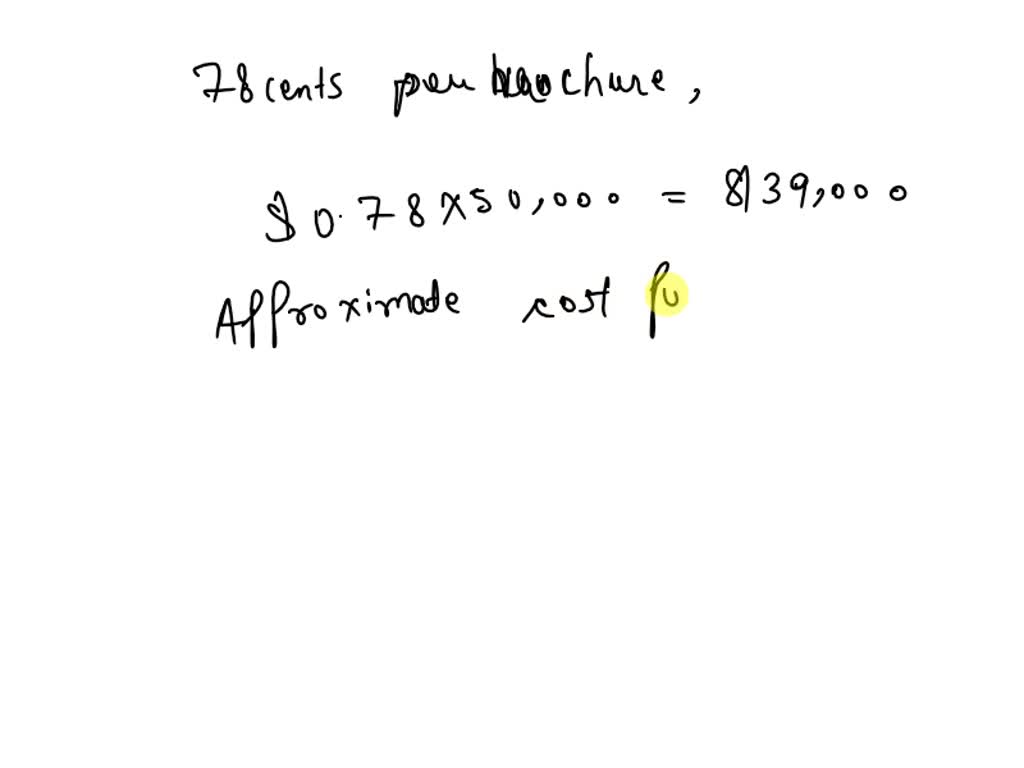 78 cents per brochure,
$0.78 x 50,000 = $39,000
Approximate cost